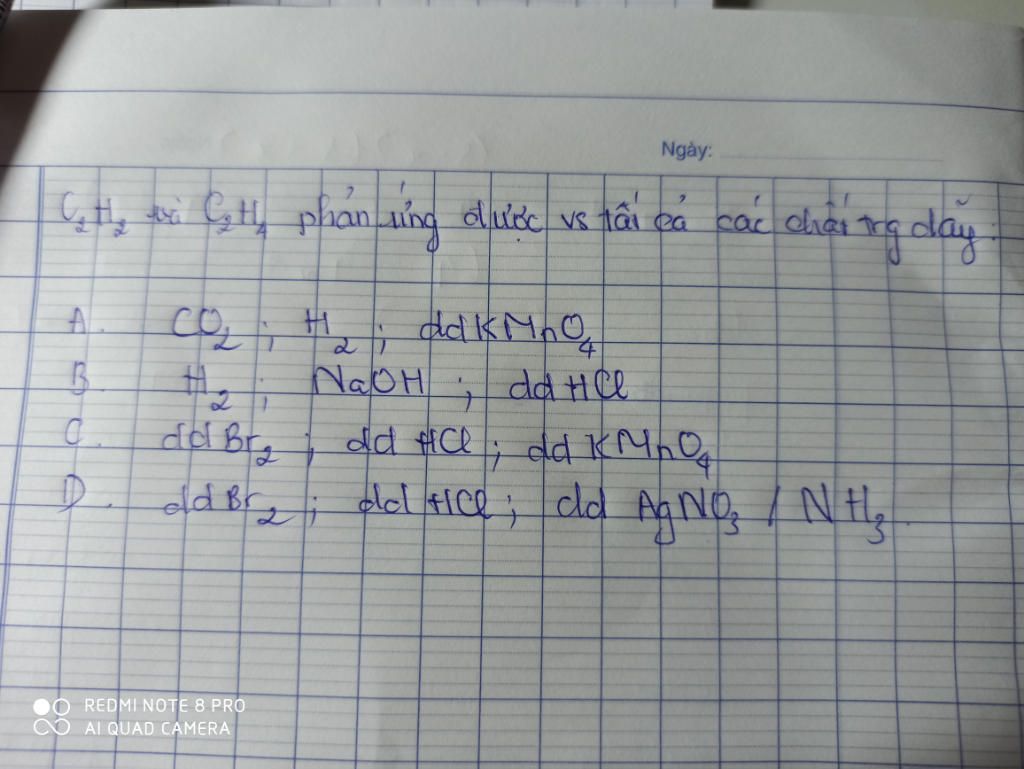 Ngày:
C₂H₂ và C₂H₄ phản ứng được vs tất cả các chất trg dãy.
A. CO₂ ; H₂ ; dd KMnO₄
B. H₂ ; NaOH ; dd HCl
C. dd Br₂ ; dd HCl ; dd KMnO₄
D. dd Br₂ ; dd HCl ; dd AgNO₃ / NH₃.
REDMI NOTE 8 PRO
AI QUAD CAMERA